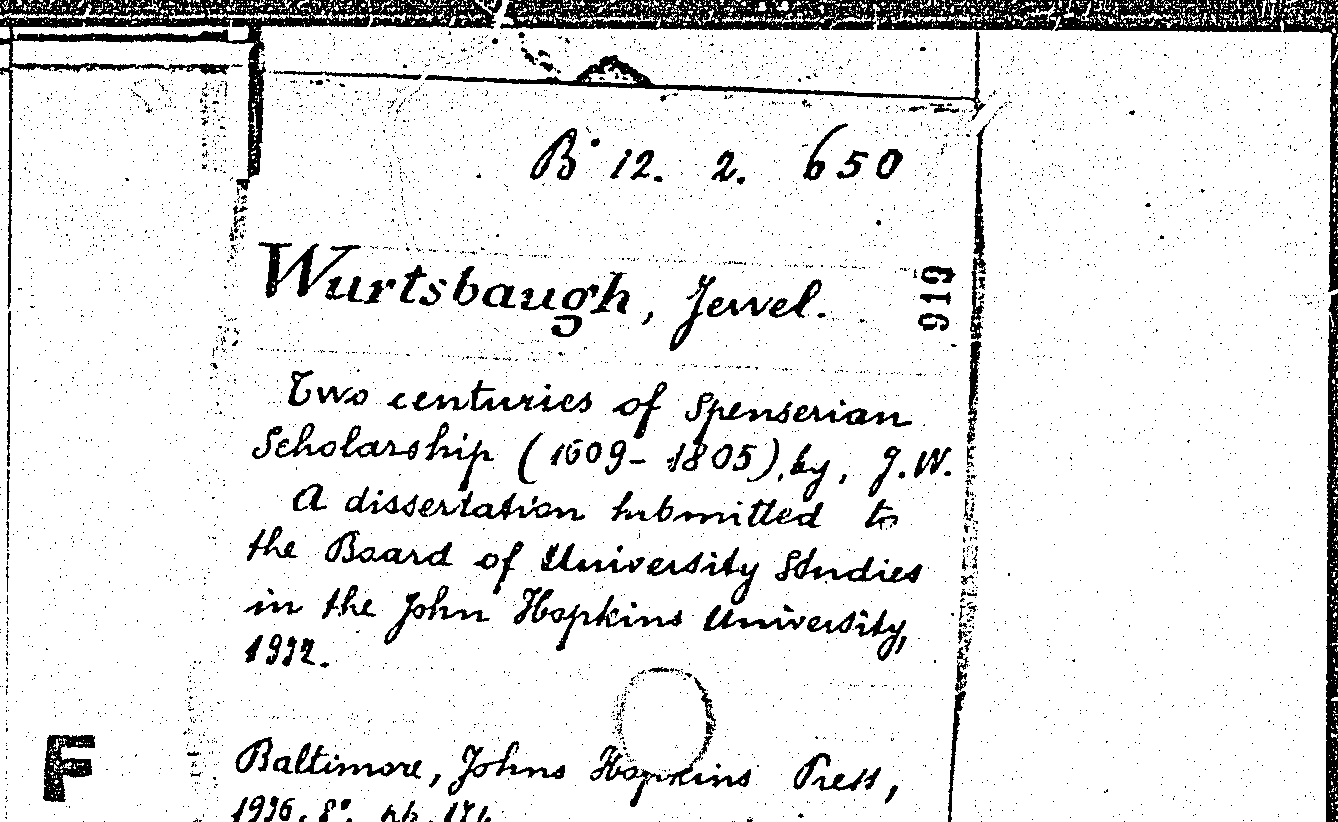 B· 12. 2. 650
Wurtsbaugh, Jewel.
919
Two centuries of Spenserian
Scholarship (1609-1805), by, J.W.
A dissertation submitted to
the Board of University Studies
in the John Hopkins University,
1932.
F
Baltimore, Johns Hopkins Press,
1936. 8°. pp. 174.